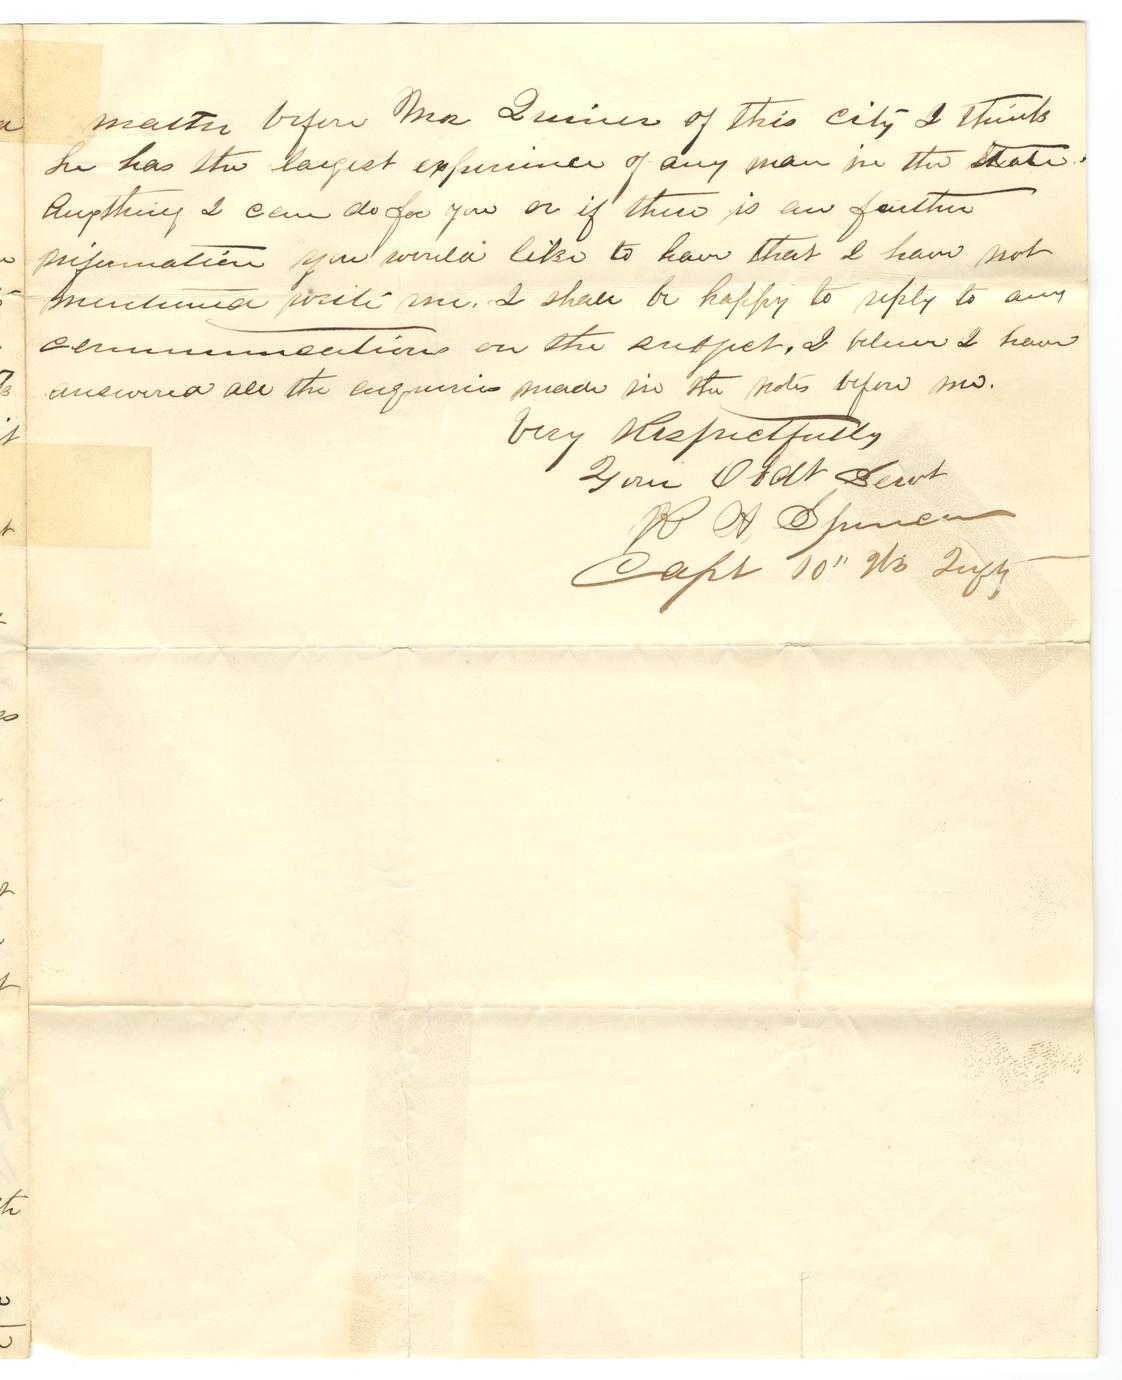 matter before Mr Quiner of this city I think
he has the largest experience of any man in the State.
Anything I can do for you or if there is an further
information you would like to have that I have not
mentioned write me. I shall be happy to reply to any
communications on the subject, I believe I have
answered all the enquiries made in the notes before me.
Very Respectfully
Your Obdt Servt
R H Spencer
Capt 10" Wis Infty